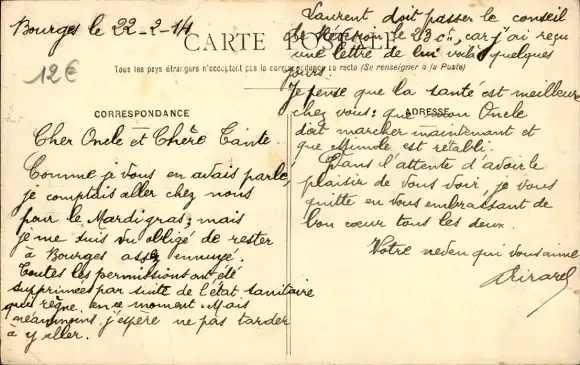 Bourges le 22-2-14
12€
CARTE POSTALE
Tous les pays étrangers n'acceptent pas la correspondance au recto (Se renseigner à la Poste)
CORRESPONDANCE
Cher Oncle et Chère Tante.
Comme je vous en avais parlé,
je comptais aller chez nous
pour le Mardi gras; mais
je me suis vu obligé de rester
à Bourges assez ennuyé.
Toutes les permissions ont été
supprimées par suite de l'état sanitaire
qui règne en ce moment. Mais
néanmoins j'espère ne pas tarder
à y aller.
Laurent doit passer le conseil
de Révision le 23 ct, car j'ai reçu
une lettre de lui voilà quelques
jours.
Je pense que la santé est meilleure
chez vous: que mon Oncle
ADRESSE
doit marcher maintenant et
que est rétabli.
Dans l'attente d'avoir le
plaisir de vous voir, je vous
quitte en vous embrassant de
bon cœur tous les deux.
Votre neveu qui vous aime